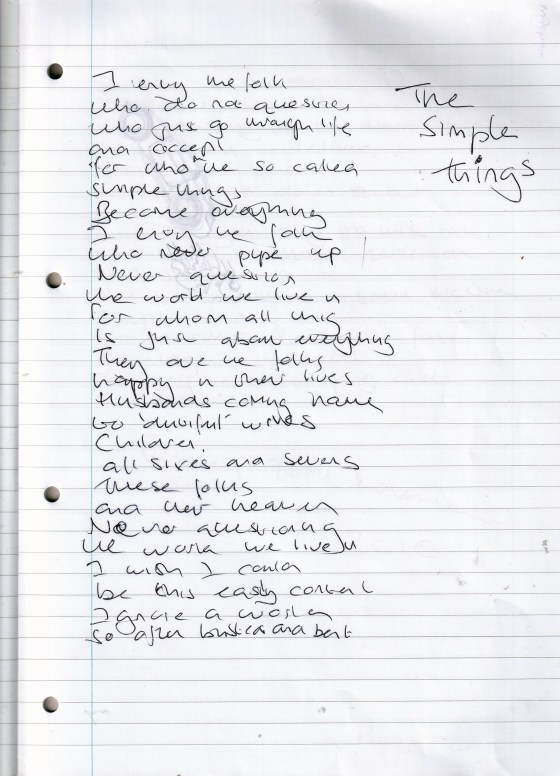 The
Simple
things
I envy the folk
who do not question
who just go through life
and accept
for who the so called
simple things
Become everything
I envy the folk
who never pipe up
Never question
the world we live in
for whom all this
Is just about everything
They are the folks
happy in their lives
Husbands coming home
to 'dutiful' wives
Children
all sixes and sevens
These folks
and their heaven
Never questioning
the world we live in
I wish I could
be this easily content
Ignore a world
so often twisted and bent